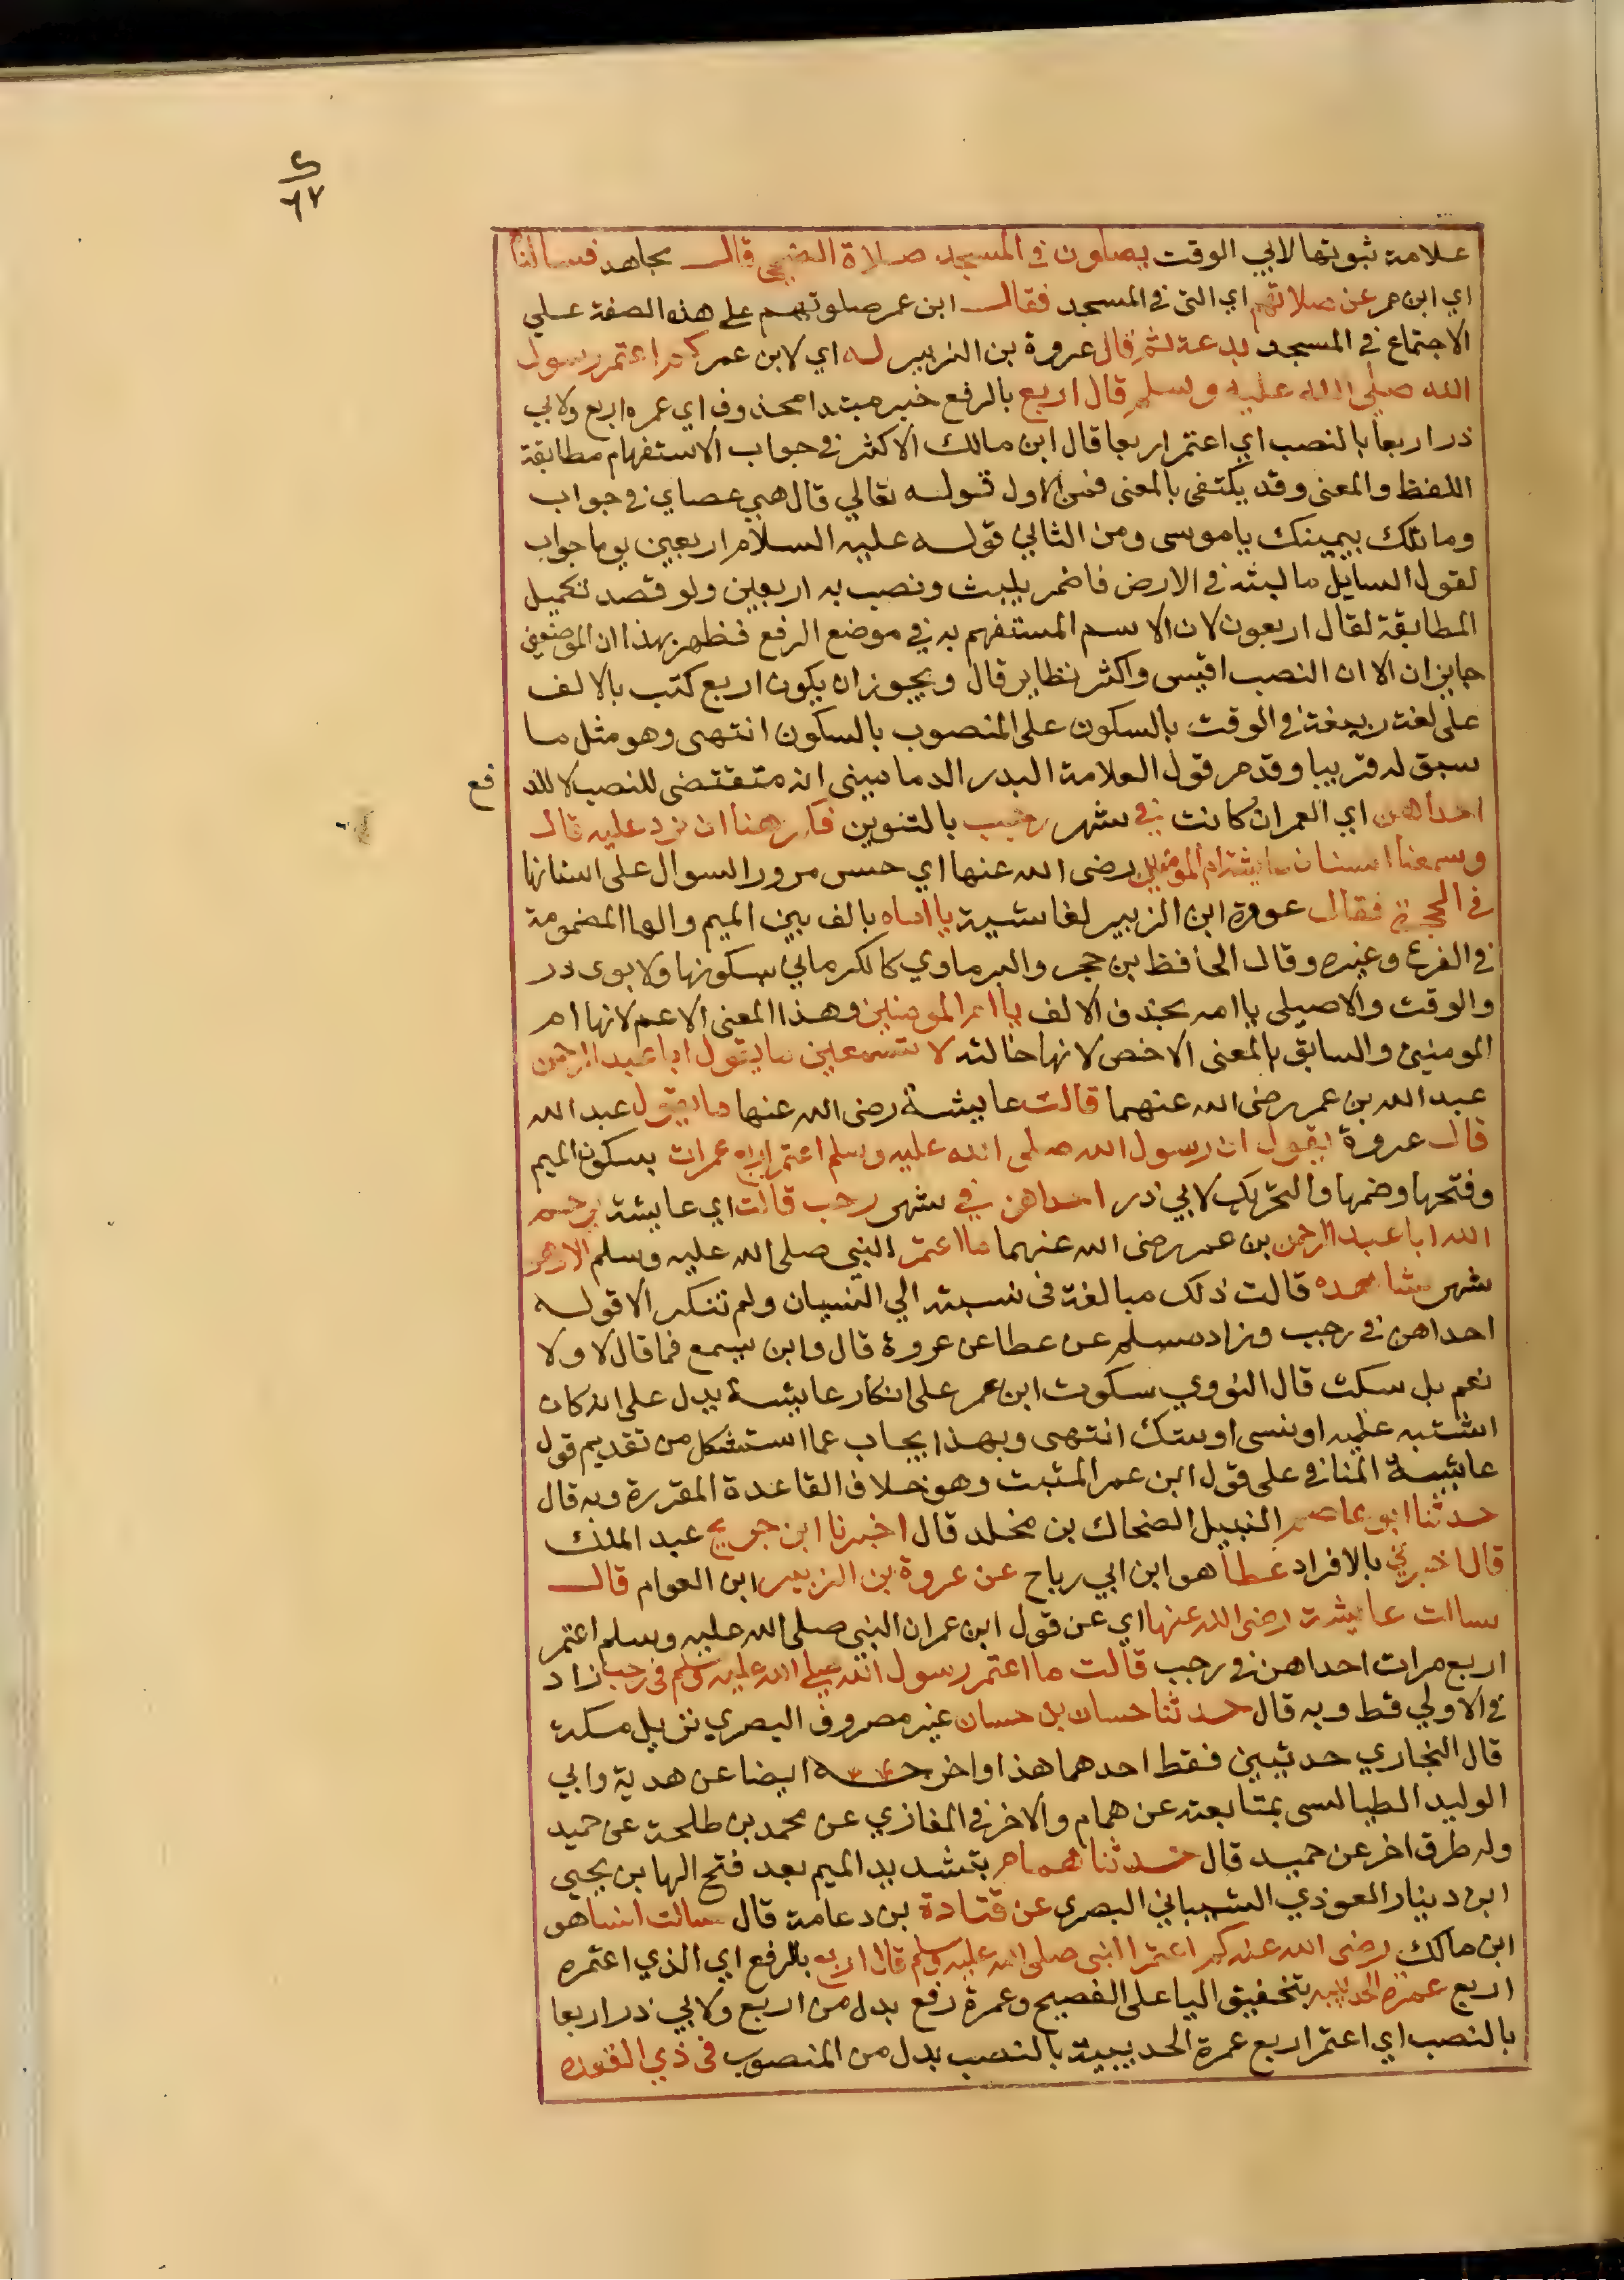 ى
٦٧
علامة ثبوتها لابي الوقت يصلون في المسجد صلاة الضحى قال مجاهد فسالنا
اي ابن عمر عن صلاتهم اي التي في المسجد فقال ابن عمر صلوتهم على هذه الصفة علي
الاجتماع في المسجد بدعة ثم قال عروة بن الزبير له اي لابن عمر كم اعتمر رسول
الله صلى الله عليه وسلم قال اربع بالرفع خبر مبتدا محذوف اي عمره اربع ولابي
ذر اربعا بالنصب اي اعتمر اربعا قال ابن مالك الاكثر في جواب الاستفهام مطابقة
اللفظ والمعنى وقد يكتفى بالمعنى فمن الاول قوله تعالي قال هي عصاي في جواب
وما تلك بيمينك ياموسى ومن الثاني قوله عليه السلام اربعين يوما جواب
لقول السايل ما لبثه في الارض فاضمر يلبث ونصب به اربعين ولو قصد تكميل
المطابقة لقال اربعون لان الاسم المستفهم به في موضع الرفع فظهر بهذا ان الموضعين
جايزان الا ان النصب اقيس واكثر نظاير قال ويجوز ان يكون اربع كتب بالالف
على لغة ربيعة في الوقت بالسكون على المنصوب بالسكون انتهى وهو مثل ما
سبق له قريبا وقد مر قول العلامة البدر الدماميني انه متقتضى للنصب لا للر
فع
احداهن اي العمران كانت في شهر رجب بالتنوين فكرهنا ان نرد عليه قال
وسمعنا استنان عايشة ام المومنين رضى الله عنها اي حس مرور السواك على اسنانها
في الحجرة فقال عروة ابن الزبير لعايشة يا اماه بالف بين الميم والها المضمومة
في الفرع وغيره وقال الحافظ بن حجر والبرماوي كالكرماني بسكونها ولابوى ذر
والوقت والاصيلى يا امه بحذف الالف يا ام المومنين وهذا المعنى الاعم لانها ام
المومنين والسابق بالمعنى الاخص لانها خالته لا تسمعين ما يقول ابا عبد الرحمن
عبد الله بن عمر رضى الله عنهما قالت عايشة رضى الله عنها ما يقول عبد الله
قال عروة يقول ان رسول الله صلى الله عليه وسلم اعتمر اربع عمرات بسكون الميم
وفتحها وضمها والتحريك لابي ذر احداهن في شهر رجب قالت اي عايشة يرحم
الله ابا عبد الرحمن بن عمر رضى الله عنهما ما اعتمر النبي صلى الله عليه وسلم الا وهو
شهر شاهده قالت ذلك مبالغة في نسبته الي النسيان ولم تنكر الا قوله
احداهن في رجب وزاد مسلم عن عطا عن عروة قال وابن يسمع فما قال لا ولا
نعم بل سكت قال النووي سكوت ابن عمر على انكار عايشة يدل على انه كان
اشتبه عليه او نسى او شك انتهى وبهذا يجاب عما استشكل من تقديم قول
عايشة النافي على قول ابن عمر المثبت وهو خلاف القاعدة المقررة وبه قال
حدثنا ابو عاصم النبيل الضحاك بن مخلد قال اخبرنا ابن جريج عبد الملك
قال اخبرني بالافراد عطا هو ابن ابي رباح عن عروة بن الزبير ابن العوام قال
سالت عايشة رضى الله عنها اي عن قول ابن عمر ان النبي صلى الله عليه وسلم اعتمر
اربع مرات احداهن في رجب قالت ما اعتمر رسول الله صلى الله عليه وسلم في رجب زاد
في الاولي قط وبه قال حدثنا حسان بن حسان غير مصروف البصري نزيل مكة
قال البخاري حديثين فقط احدهما هذا واخرجه ايضا عن هدية وابي
الوليد الطيالسى بمتابعته عن همام والاخر في المغازي عن محمد بن طلحة عن حميد
وله طرق اخر عن حميد قال حدثنا همام بتشديد الميم بعد فتح الها بن يحيي
ابن دينار العوذي الشيباني البصري عن قتادة بن دعامة قال سالت انسا هو
ابن مالك رضى الله عنه كم اعتمر النبى صلى الله عليه وسلم قال اربع بالرفع اي الذي اعتمره
اربع عمرة الحديبية بتخفيق اليا على الفصيح وعمرة رفع بدل من اربع ولابي ذر اربعا
بالنصب اي اعتمر اربع عمرة الحديبية بالنصب بدل من المنصوب في ذي القعده